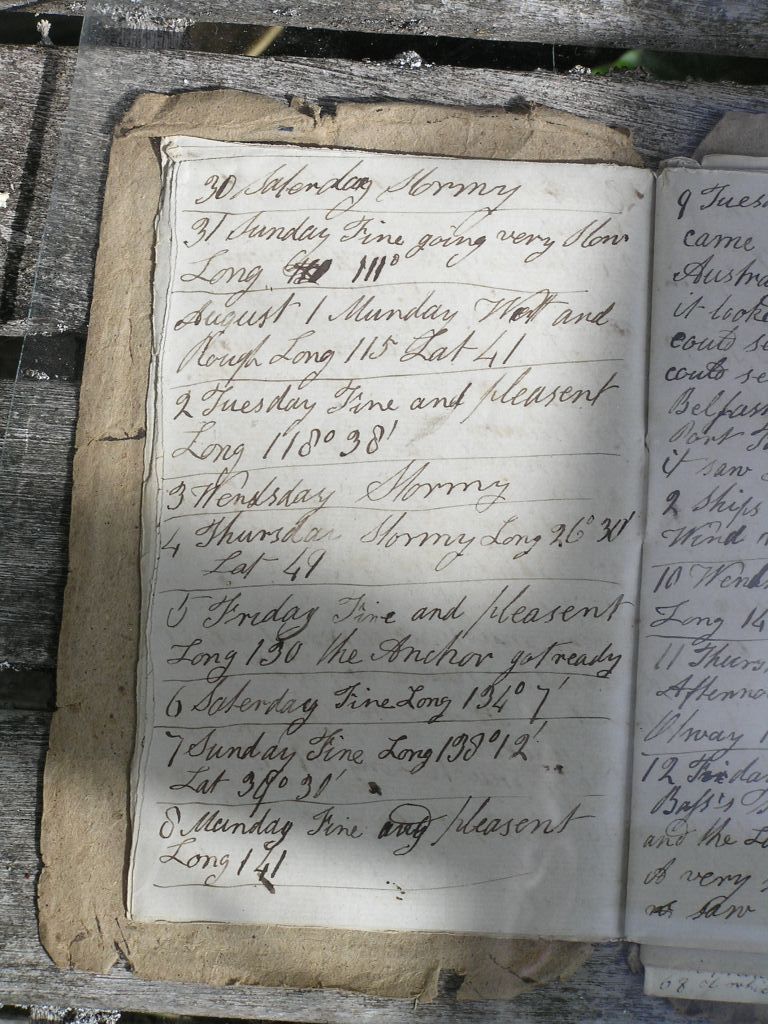 30 Saterday Stormy
31 Sunday Fine going very Slow
Long 111°
August 1 Munday Wett and
Rough Long 115 Lat 41
2 Tuesday Fine and pleasent
Long 118° 38'
3 Wendsday Stormy
4 Thursday Stormy Long 26° 30'
Lat 49
5 Friday Fine and pleasent
Long 130 the Anchor got ready
6 Saterday Fine Long 134° 7'
7 Sunday Fine Long 138° 12'
Lat 38° 30'
8 Munday Fine and pleasent
Long 141
9 Tues
came
Austra
it looke
could se
could se
Belfas
Port
it saw
2 Ships
Wind
10 Wend
Long 14
11 Thurs
Afterno
Otway
12 Frida
Bass's
and the
of very
saw